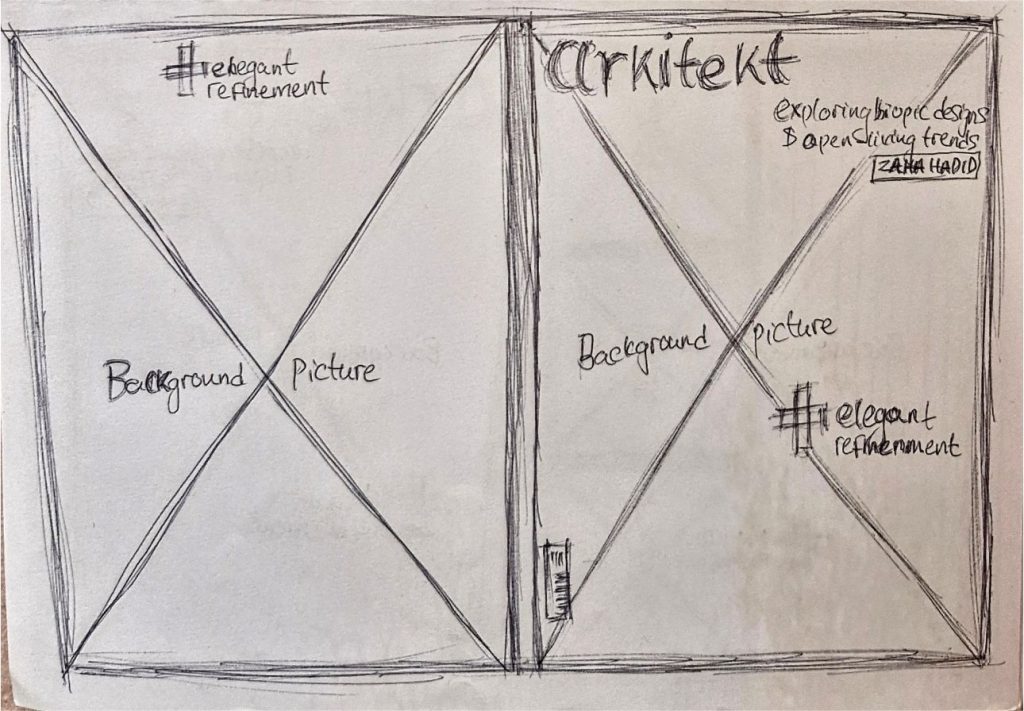 #elegant
refinement
Background Picture
arkitekt
exploring biopic designs
& open living trends
ZAHA HADID
Background picture
#elegant
refinement